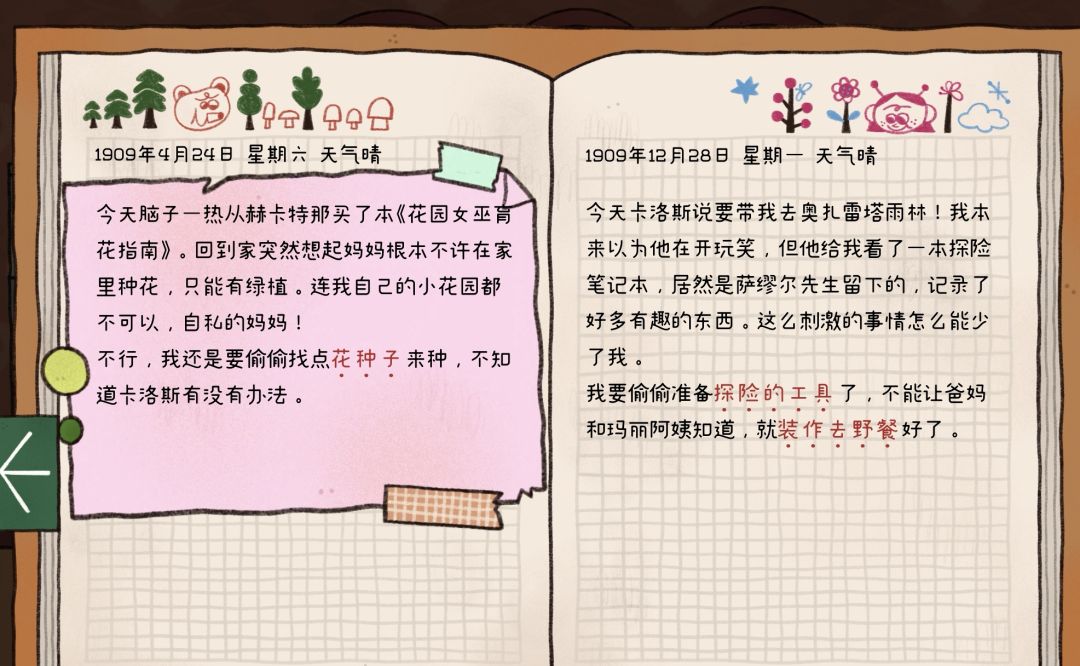 1909年4月24日 星期六 天气晴
今天脑子一热从赫卡特那买了本《花园女巫育
花指南》。回到家突然想起妈妈根本不许在家
里种花，只能有绿植。连我自己的小花园都
不可以，自私的妈妈！
不行，我还是要偷偷找点花种子来种，不知
道卡洛斯有没有办法。
1909年12月28日 星期一 天气晴
今天卡洛斯说要带我去奥扎雷塔雨林！我本
来以为他在开玩笑，但他给我看了一本探险
笔记本，居然是萨缪尔先生留下的，记录了
好多有趣的东西。这么刺激的事情怎么能少
了我。
我要偷偷准备探险的工具了，不能让爸妈
和玛丽阿姨知道，就装作去野餐好了。